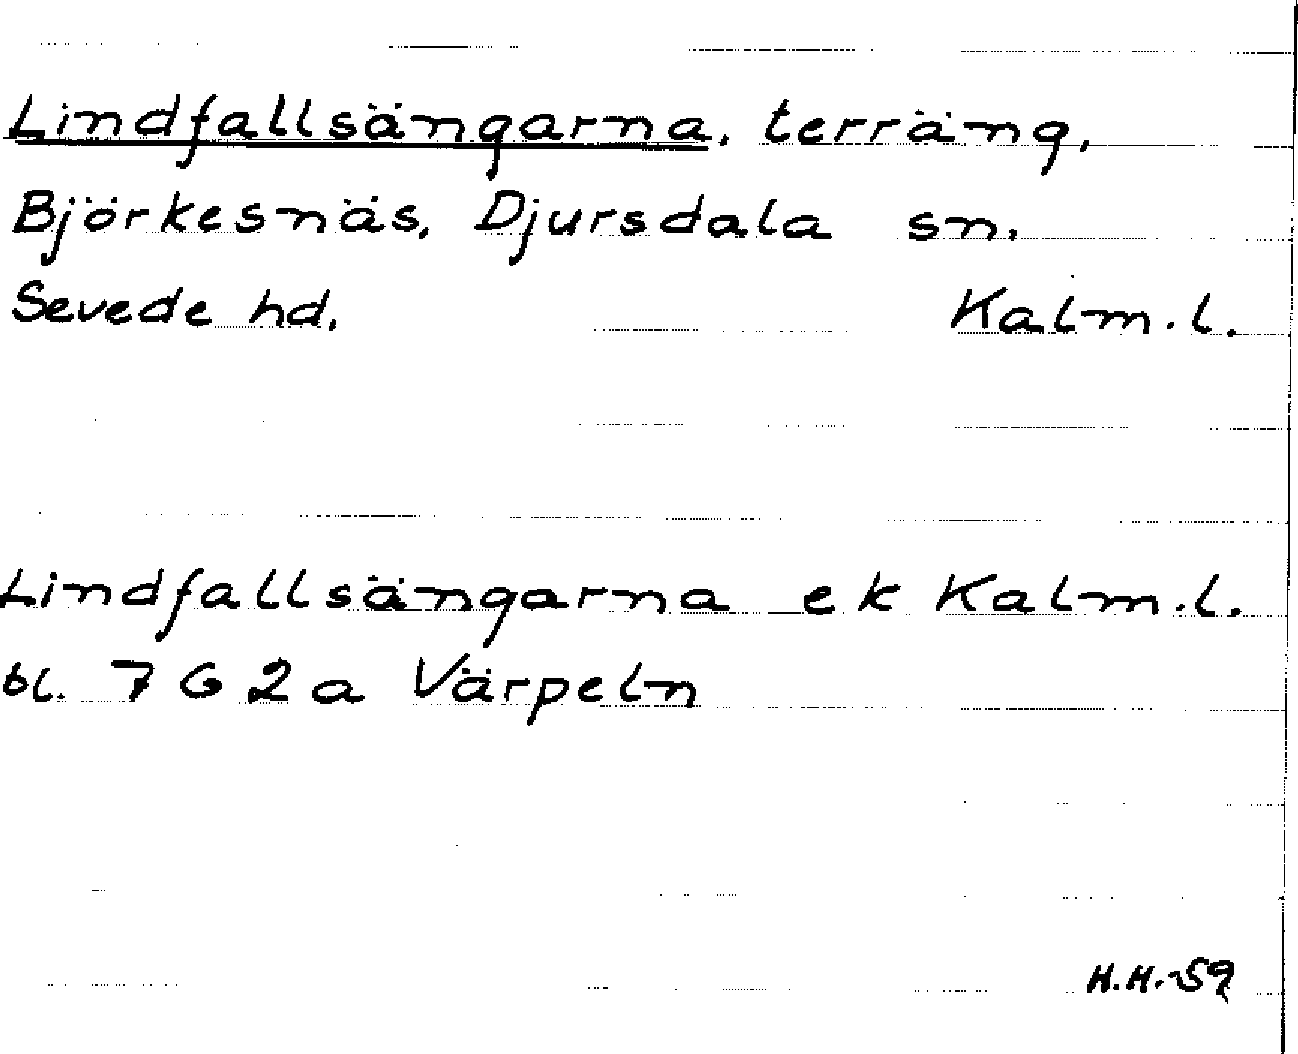 Lindfallsängarna, terräng,
Björkesnäs, Djursdala sn.
Sevede hd. Kalm.l.
Lindfallsängarna ek Kalm.l.
bl. 7 G 2 a Värpeln
H.H.-59